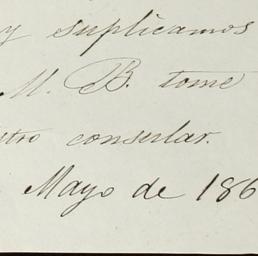 y suplicamos
M. B. tome
stro consular.
Mayo de 186